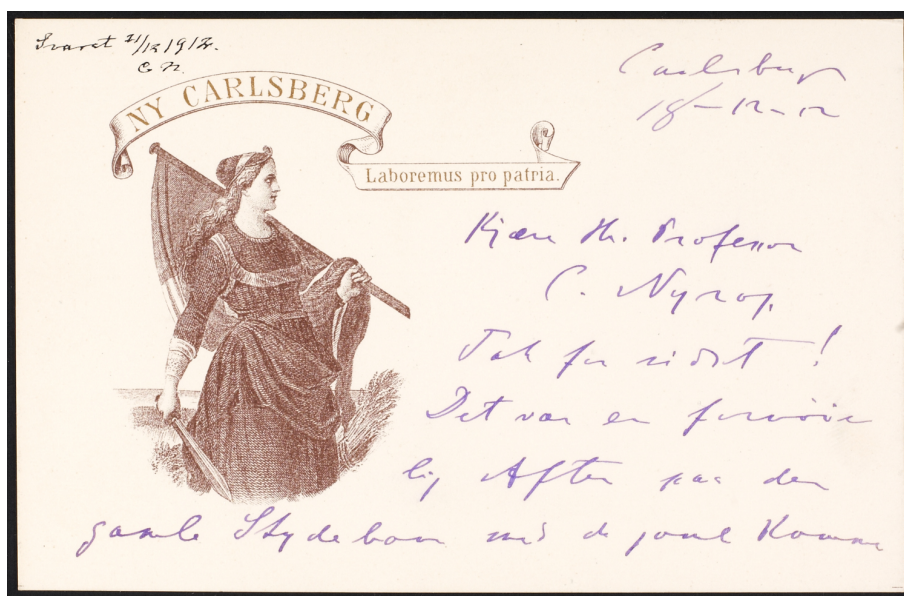 Svaret 21/12 1912.
C. N.
NY CARLSBERG
Laboremus pro patria.
Carlsberg
18-12-12
Kjære Hr. Professor
C. Nyrop.
Tak for sidst!
Det var en fornöie
lig Aften paa den
gamle med de